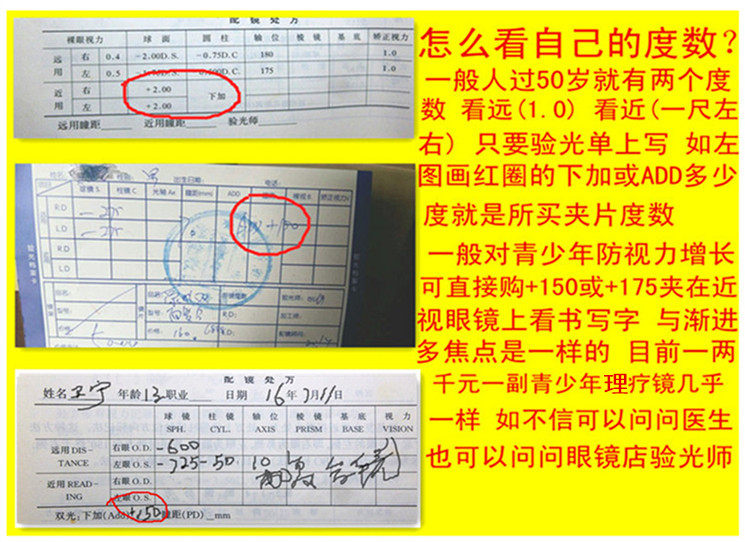 配镜处方
裸眼视力 球面 圆柱 轴位 棱镜 基底 矫正视力
远用 右 0.4 -2.00D.S. -0.75D.C 180 1.0
左 0.5 D.S. D.C 175 1.0
近用 右 +2.00 下加
左 +2.00
远用瞳距 近用瞳距 验光师
姓名 性别 出生日期: 电话:
球镜 S 柱镜 C 光轴 Ax 瞳距(mm) ADD 棱镜 裸视 B. 矫正视力V
RD
LD
RD
LD
验光档案卡
品名: 品名:
型号: 型号: R.D:
价格: 价格: L.D:
配镜处方
姓名 年龄 13 职业 日期 16年7月11日
球镜 柱镜 轴位 棱镜 基底 视力
SPH. CYL. AXIS PRISM BASE VISION
远用 DIS-TANCE 右眼 O.D. -600
左眼 O.S. -725 -50 10
近用 READ-ING 右眼 O.D.
左眼 O.S.
双光:下加(Add) +150 瞳距(PD) mm
怎么看自己的度数?
一般人过50岁就有两个度
数 看远(1.0) 看近(一尺左
右) 只要验光单上写 如左
图画红圈的下加或ADD多少
度就是所买夹片度数
一般对青少年防视力增长
可直接购+150或+175夹在近
视眼镜上看书写字 与渐进
多焦点是一样的 目前一两
千元一副青少年理疗镜几乎
一样 如不信可以问问医生
也可以问问眼镜店验光师